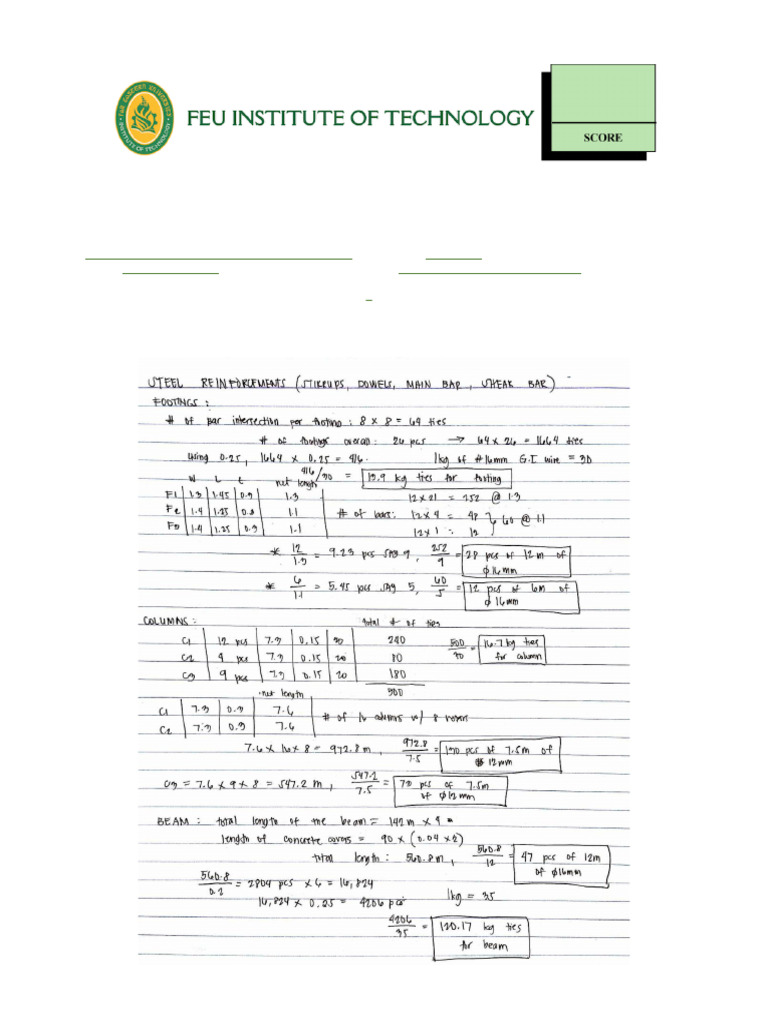 FEU INSTITUTE OF TECHNOLOGY
SCORE
STEEL REINFORCEMENTS (STIRRUPS, DOWELS, MAIN BAR, SHEAR BAR)
FOOTINGS:
# of bar intersection per footing: 8 x 8 = 64 ties
# of footings overall: 26 pcs → 64 x 26 = 1664 ties
Using 0.25, 1664 x 0.25 = 416. 1kg of #16mm G.I wire = 30
416/30 = 13.9 kg ties for footing
W L t net length
F1 1.3 1.45 0.3 1.3 12 x 21 = 252 @ 1.3
F2 1.4 1.25 0.3 1.1 # of bars: 12 x 4 = 48 } 60 @ 1.1
F3 1.4 1.25 0.3 1.1 12 x 1 = 12
* 12/1.3 = 9.23 pcs say 9, 252/9 = 28 pcs of 12 m of φ16mm
* 6/1.1 = 5.45 pcs say 5, 60/5 = 12 pcs of 6m of φ16mm
COLUMNS: total # of ties
C1 12 pcs 7.3 0.15 20 240 500/30 = 16.7 kg ties for column
C2 4 pcs 7.3 0.15 20 80
C3 9 pcs 7.3 0.15 20 180
500
net length
C1 7.3 0.3 7.6 # of 16 columns w/ 8
C2 7.3 0.3 7.6
7.6 x 16 x 8 = 972.8 m, 972.8/7.5 = 130 pcs of 7.5m of φ 12mm
C3 = 7.6 x 9 x 8 = 547.2 m, 547.2/7.5 = 73 pcs of 7.5m of φ12mm
BEAM: total length of the beam = 142 m x 4 =
length of concrete covers = 90 x (0.04 x 2)
total length: 560.8m, 560.8/12 = 47 pcs of 12m of φ16mm
560.8/0.2 = 2804 pcs x 6 = 16,824
16,824 x 0.25 = 4206 pcs 1kg = 35
4206/35 = 120.17 kg ties for beam